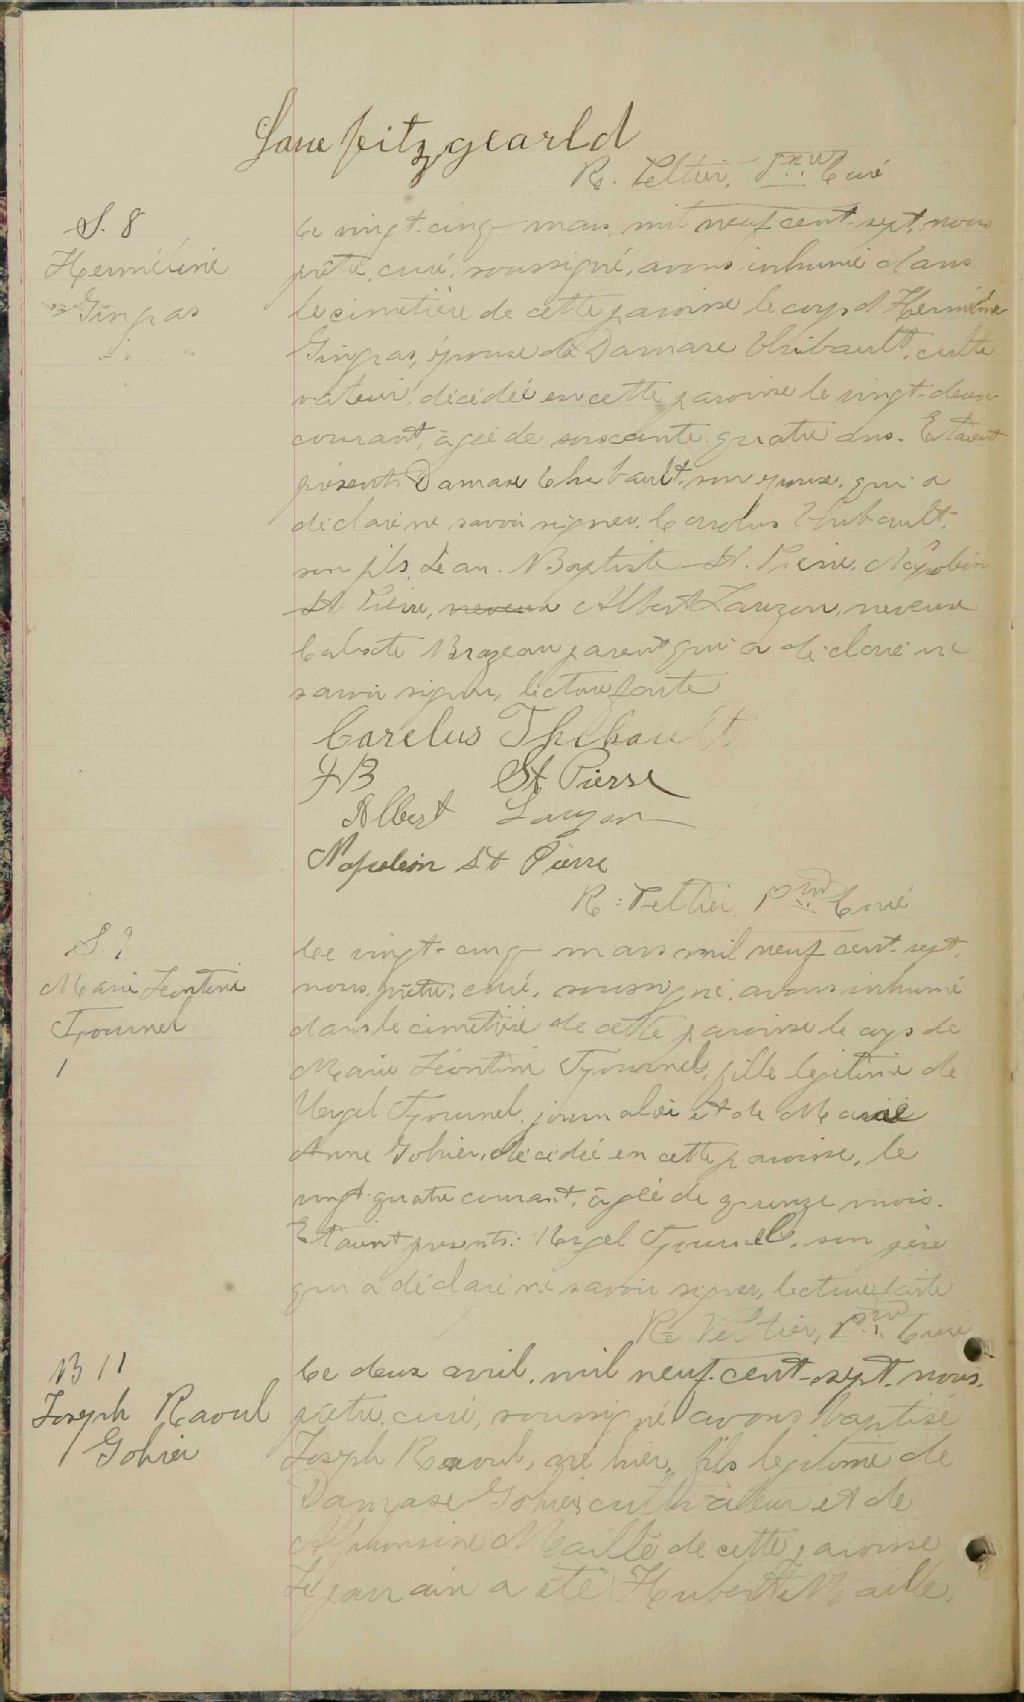 Jane fitzgearld
Ré. Peltier, Ptre Curé
S. 8
Herméline
Gingras
Ce vingt-cinq mars, mil neuf cent-sept, nous
prêtre, curé, soussigné, avons inhumé dans
le cimetière de cette paroisse le corps d'Herméline
Gingras, épouse de Damase Thibault, culti-
vateur, décédée en cette paroisse le vingt-deux
courant, âgée de soixante-quatre ans. Etaient
présents Damase Thibault, son époux, qui a
déclaré ne savoir signer, Carolus Thibault,
son fils, Jean-Baptiste St. Pierre, Napoléon
St Pierre, neveux Albert Lauzon, neveux
Brazeau parent qui a déclaré ne
savoir signer, lecture faite
Carelus Thibault
JB St Pierre
Albert Lauzon
Napoleon St Pierre
Ré. Peltier Ptre Curé
S 9
Marie Léontine
Fournel
1
Ce vingt-cinq mars mil neuf cent-sept,
nous, prêtre, curé, soussigné, avons inhumé
dans le cimetière de cette paroisse le corps de
Marie Léontine Fournel, fille légitime de
Urgel Fournel, journalier et de Marie
Anne Gohier, décédée en cette paroisse, le
vingt-quatre courant, âgée de quinze mois.
Etaient présents: Urgel Fournel, son père
qui a déclaré ne savoir signer, lecture faite
Ré Peltier, Ptre Curé
B 11
Joseph Raoul
Gohier
Ce deux avril, mil neuf-cent-sept, nous,
prêtre, curé, soussigné avons baptisé
Joseph Raoul, né hier, fils légitime de
Damase Gohier, cultivateur et de
Alphonsine Maillé de cette paroisse
Le parrain a été Hubert Maille,